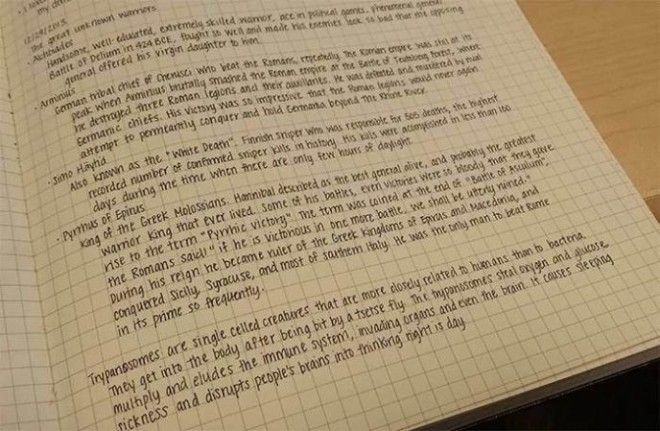 12/29/2013
The great unknown warriors.
· Alcibiades
Handsome, well-educated, extremely skilled warrior, ace in political games, phenomenal general
Battle of Delium in 424 BCE, fought so well and made his enemies look so bad that the opposing
general offered his virgin daughter to him.
· Arminius
German tribal chief of Cherusci who beat the Romans, repeatedly. The Roman empire was still at its
peak when Arminius brutally smashed the Roman empire at the Battle of Teutoburg forest, where
he destroyed three Roman legions and their auxiliaries. He was defeated and murdered by rival
Germanic chiefs. His victory was so impressive that the Roman legions would never again
attempt to permeantly conquer and hold Germania beyond the Rhine River.
· Simo Häyhä
Also known as the "White Death". Finnish sniper who was responsible for 505 deaths, the highest
recorded number of confirmed sniper kills in history. His kills were acomplished in less than 100
days during the time when there are only few hours of daylight.
· Pyrrhus of Epirus
King of the Greek Molossians. Hannibal described as the best general alive, and probably the greatest
warrior King that ever lived. Some of his battles, even victories were so bloody that they gave
rise to the term "Pyrrhic victory". The term was coined at the end of "Battle of Asculum",
the Romans said: "if he is victorious in one more battle, we shall be utterly ruined."
During his reign he became ruler of the Greek Kingdoms of Epirus and Macedonia, and
conquered Sicily, Syracuse, and most of southern Italy. He was the only man to beat Rome
in its prime so frequently.
Trypanosomes are single celled creatures that are more closely related to humans than to bacteria.
They get into the body after being bit by a tsetse fly. The trypanosomes steal oxygen and glucose,
multiply and eludes the immune system, invading organs and even the brain. It causes sleeping
sickness and disrupts people's brains into thinking night is day.